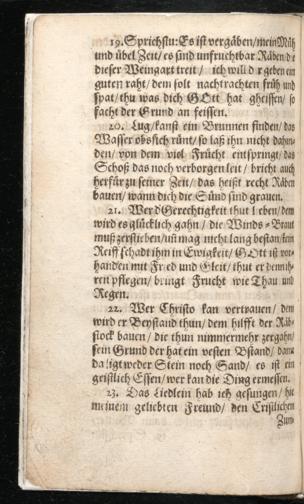 19. Sprichstu: Es ist vergäben/ mein Müh
und übel Zeit/ es sind unfruchtbar Räben die
dieser Weingart treit/ ich will dir geben ein
guten raht/ dem solt nachtrachten früh und
spat/ thu was dich GOtt hat gheissen/ so
facht der Grund an feissen.
20. Lug/kanst ein Brunnen finden/ das
Wasser obsich rünt/ so laß ihn nicht dahin-
den/ von dem viel Frücht entspringt/ das
Schoß das noch verborgen leit/ bricht auch
herfür zu seiner Zeit/ das heißt recht Räben
bauen/ wann dich die Sünd sind grauen.
21. Wer d Gerechtigkeit thut leben/ dem
wird es glücklich gahn/ die Winds-Braut
muß zerstieben/ uñ mag nicht lang bestan/ kein
Reiff schadt ihm in Ewigkeit/ GOtt ist vor-
handen mit Fried und Gleit/ thut er dem ih-
ren pflegen/ bringt Frucht wie Thau und
Regen.
22. Wer Christo kan vertrauen/ dem
wird er Beystand thun/ dem hilfft der Räb-
stock bauen/ die thun nimmermehr zergahn/
sein Grund der hat ein vesten Bstand/ dann
da ligt weder Stein noch Sand/ es ist ein
geistlich Essen/ wer kan die Ding ermessen.
23. Das Liedlein hab ich gesungen/ hie
meinem geliebten Freund/ den Cristlichen
Zun-